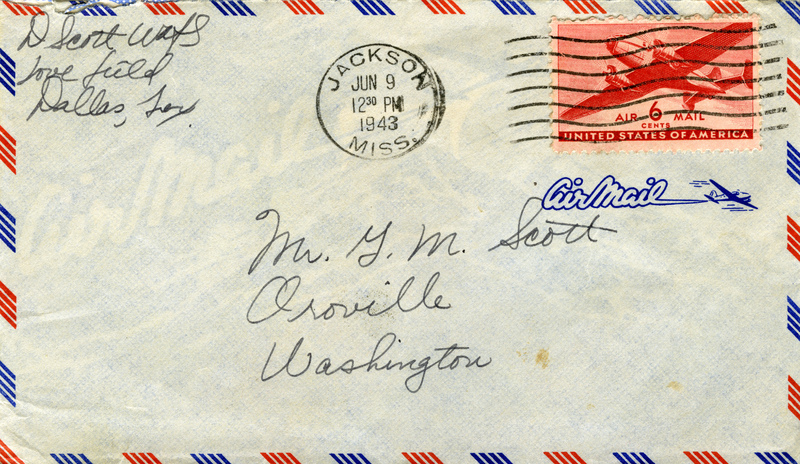 D Scott WAFS
Love Field
Dallas, Tex
JACKSON
JUN 9
12 30 PM
1943
MISS.
AIR 6 MAIL
CENTS
UNITED STATES OF AMERICA
Air Mail
Mr. G. M. Scott
Oroville
Washington
Air Mail